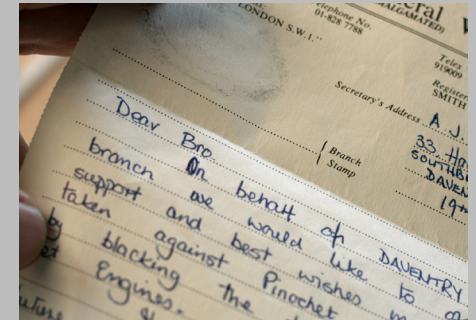 eral
MALGAMATED)
Telephone No.
01-828 7788
LONDON S.W.1."
Telex
919009
Registe
SMITH
Secretary's Address A J.
33. Ho
SOUTHB
DAVEN
19
Branch
Stamp
Dear Bro.
On behalf of DAVENTRY
branch we would like to
support and best wishes
taken against Pinochet
by blacking the
Engines.